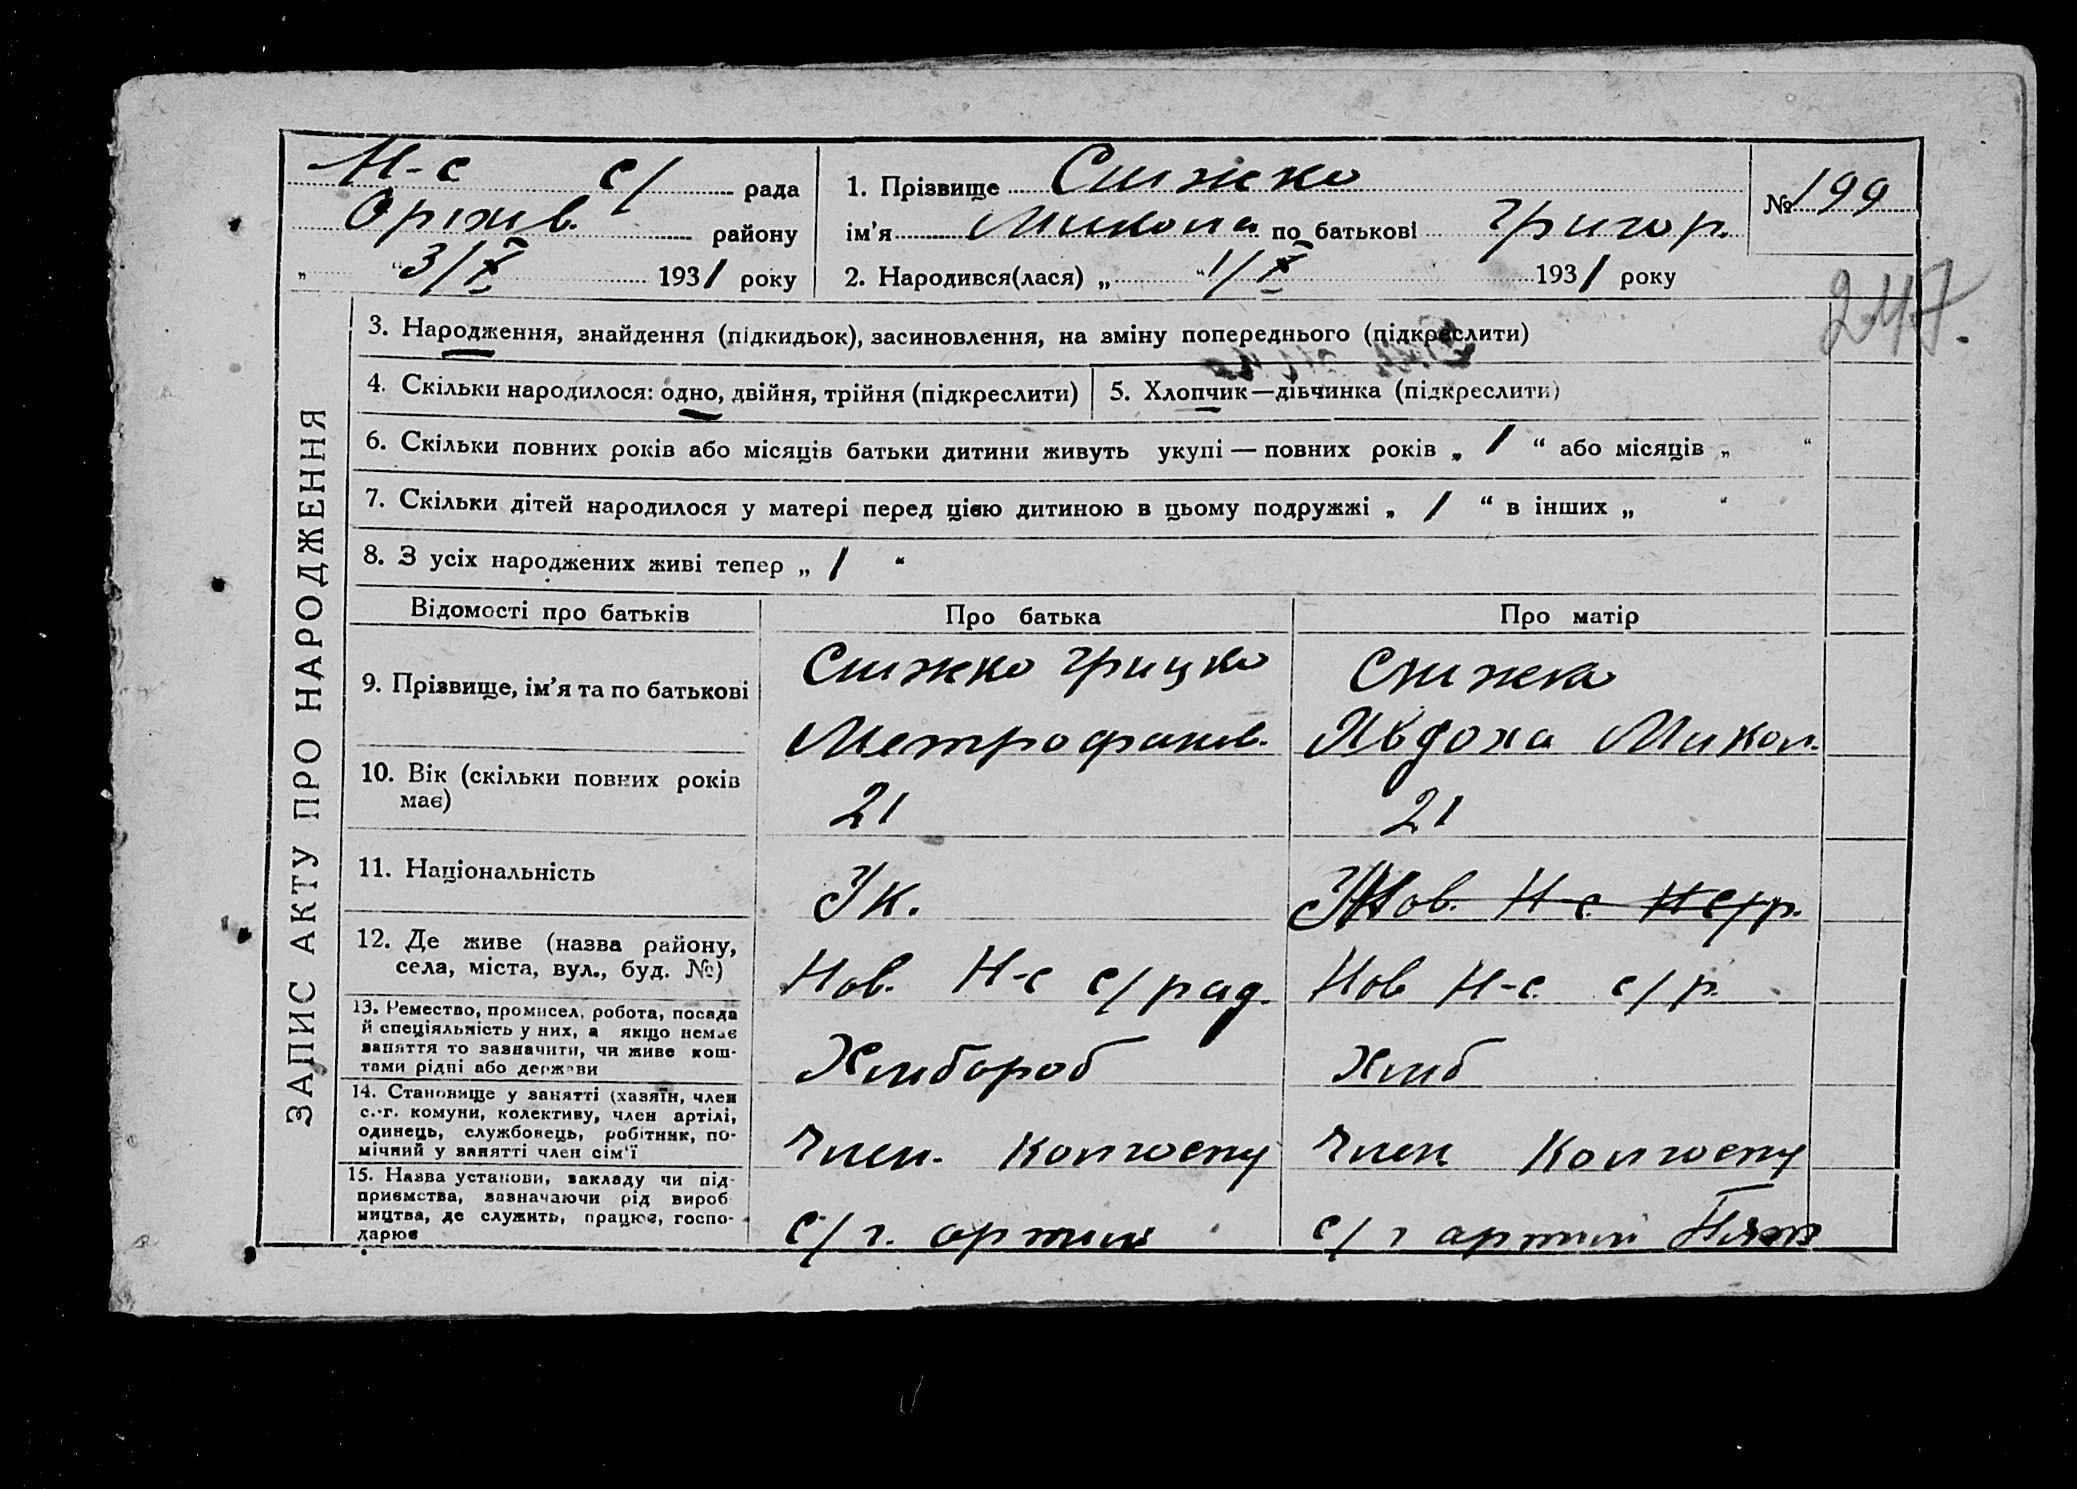 Н-с с/ рада
Оріхів. району
„ “ 3/X 1931 року
1. Прізвище Снижко
ім’я Микола по батькові Григор.
2. Народився(лася) „ “ 1/X 1931 року
№ 199
247.
ЗАПИС АКТУ ПРО НАРОДЖЕННЯ
3. Народження, знайдення (підкидьок), засиновлення, на зміну попереднього (підкреслити)
4. Скільки народилося: одно, двійня, трійня (підкреслити)
5. Хлопчик—дівчинка (підкреслити)
6. Скільки повних років або місяців батьки дитини живуть укупі — повних років „ 1 “ або місяців „ “
7. Скільки дітей народилося у матері перед цією дитиною в цьому подружжі „ 1 “ в інших „ “
8. З усіх народжених живі тепер „ 1 “
Відомості про батьків
Про батька
Про матір
9. Прізвище, ім’я та по батькові
Снижко Грицко
Метрофанов.
Снижко
Явдоха Микол.
10. Вік (скільки повних років
має)
21
21
11. Національність
Ук.
Ук Нов. Н-с с/р.
12. Де живе (назва району,
села, міста, вул., буд. №)
Нов. Н-с с/рад.
Нов Н-с. с/р.
13. Ремество, промисел, робота, посада
й спеціяльність у них, а якщо немає
заняття то зазначити, чи живе кош-
тами рідні або держави
Хлибороб
Хлиб
14. Становище у занятті (хазяїн, член
с.-г. комуни, колективу, член артілі,
одинець, службовець, робітник, по-
мічний у занятті член сім’ї
Член. Колгоспу
Член Колгоспу
15. Назва установи, закладу чи під-
приємства, зазначаючи рід вироб
ництва, де служить, працює, госпо-
дарює
с/г. артили
с/г артили